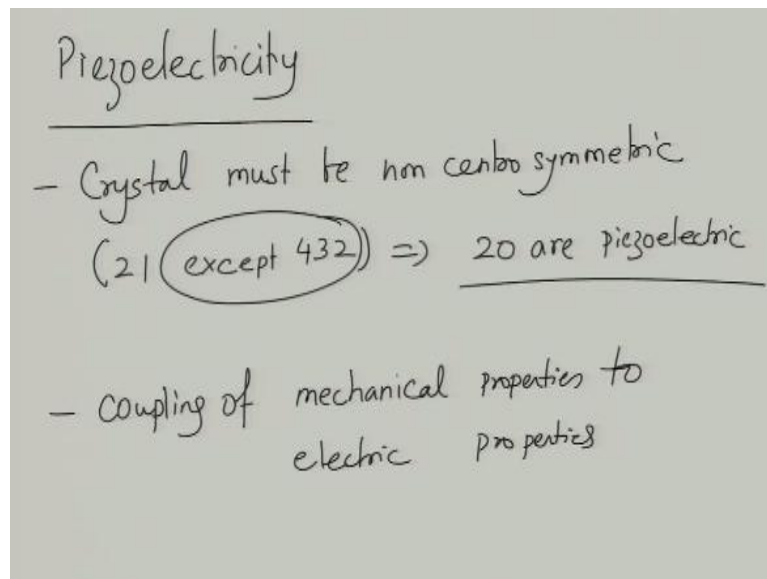 Piezoelectricity
- Crystal must be non centro symmetric
(21 (except 432)) => 20 are piezoelectric
- Coupling of mechanical properties to
electric properties